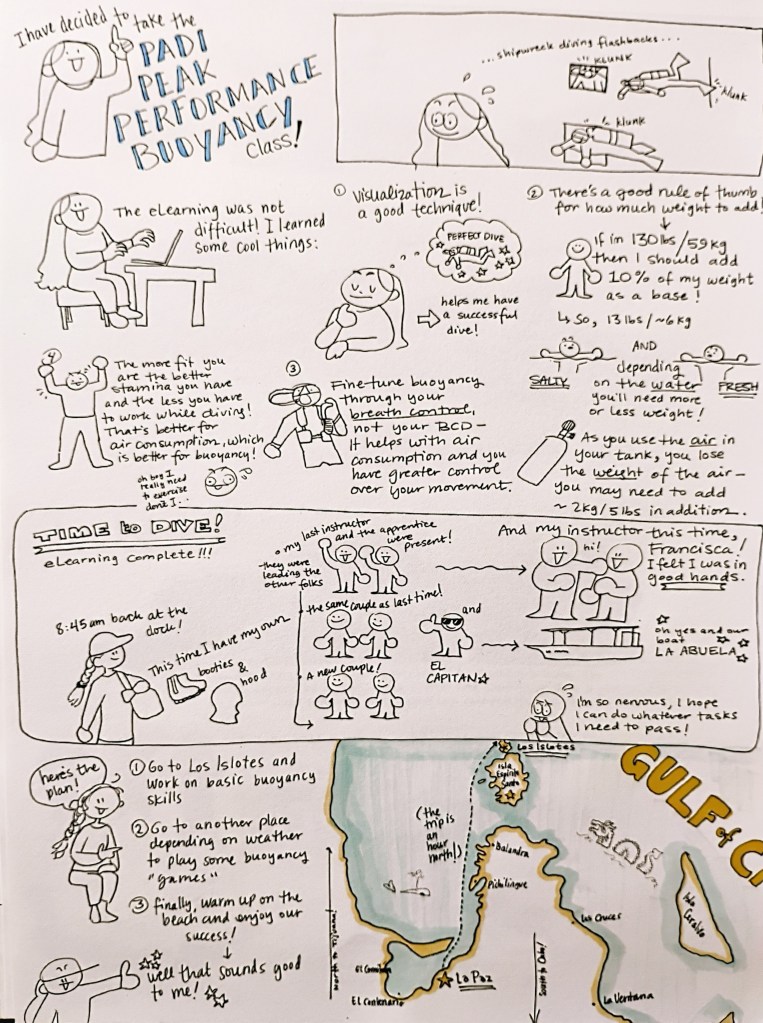 I have decided to take the
PADI
PEAK
PERFORMANCE
BUOYANCY
class!
...shipwreck diving flashbacks...
KLUNK
klunk
klunk
The eLearning was not
difficult! I learned
some cool things:
① visualization is
a good technique!
PERFECT DIVE
helps me have
a successful
dive!
② There's a good rule of thumb
for how much weight to add!
if im 130lbs/59kg
then I should add
10% of my weight
as a base!
↳ so, 13 lbs/~6kg
AND
depending
on the water
you'll need more
or less weight!
SALTY
FRESH
As you use the air in
your tank, you lose
the weight of the air—
you may need to add
~2kg/5lbs in addition.
③
Fine-tune buoyancy
through your
breath control,
not your BCD—
It helps with air
consumption and you
have greater control
over your movement.
④
The more fit you
are the better
stamina you have
and the less you have
to work while diving!
That's better for
air consumption, which
is better for buoyancy!
oh boy I
really need
to exercise
don't I...
TIME to DIVE!
eLearning complete!!!
8:45am back at the
dock!
This time I have my own
booties &
hood
my last instructor
and the apprentice
were
present!
they were
leading the
other folks
the same couple as last time!
and
EL
CAPITAN☆
A new couple!
And my instructor this time,
Francisca!
I felt I was in
good hands.
hi!
oh yes and our
boat
LA ABUELA
I'm so nervous, I hope
I can do whatever tasks
I need to pass!
here's the
plan!
① Go to Los Islotes and
work on basic buoyancy
skills
② Go to another place
depending on weather
to play some buoyancy
"games"
③ finally, warm up on the
beach and enjoy our
success!
well that sounds good
to me!
Los Islotes
Isla
Espiritu
Santo
(the
trip is
an
hour
north!)
GULF of C
Balandra
Pichilingue
Las Cruces
Isla Cerralvo
El Comitan
El Centenario
La Paz
South to Cabo!
La Ventana